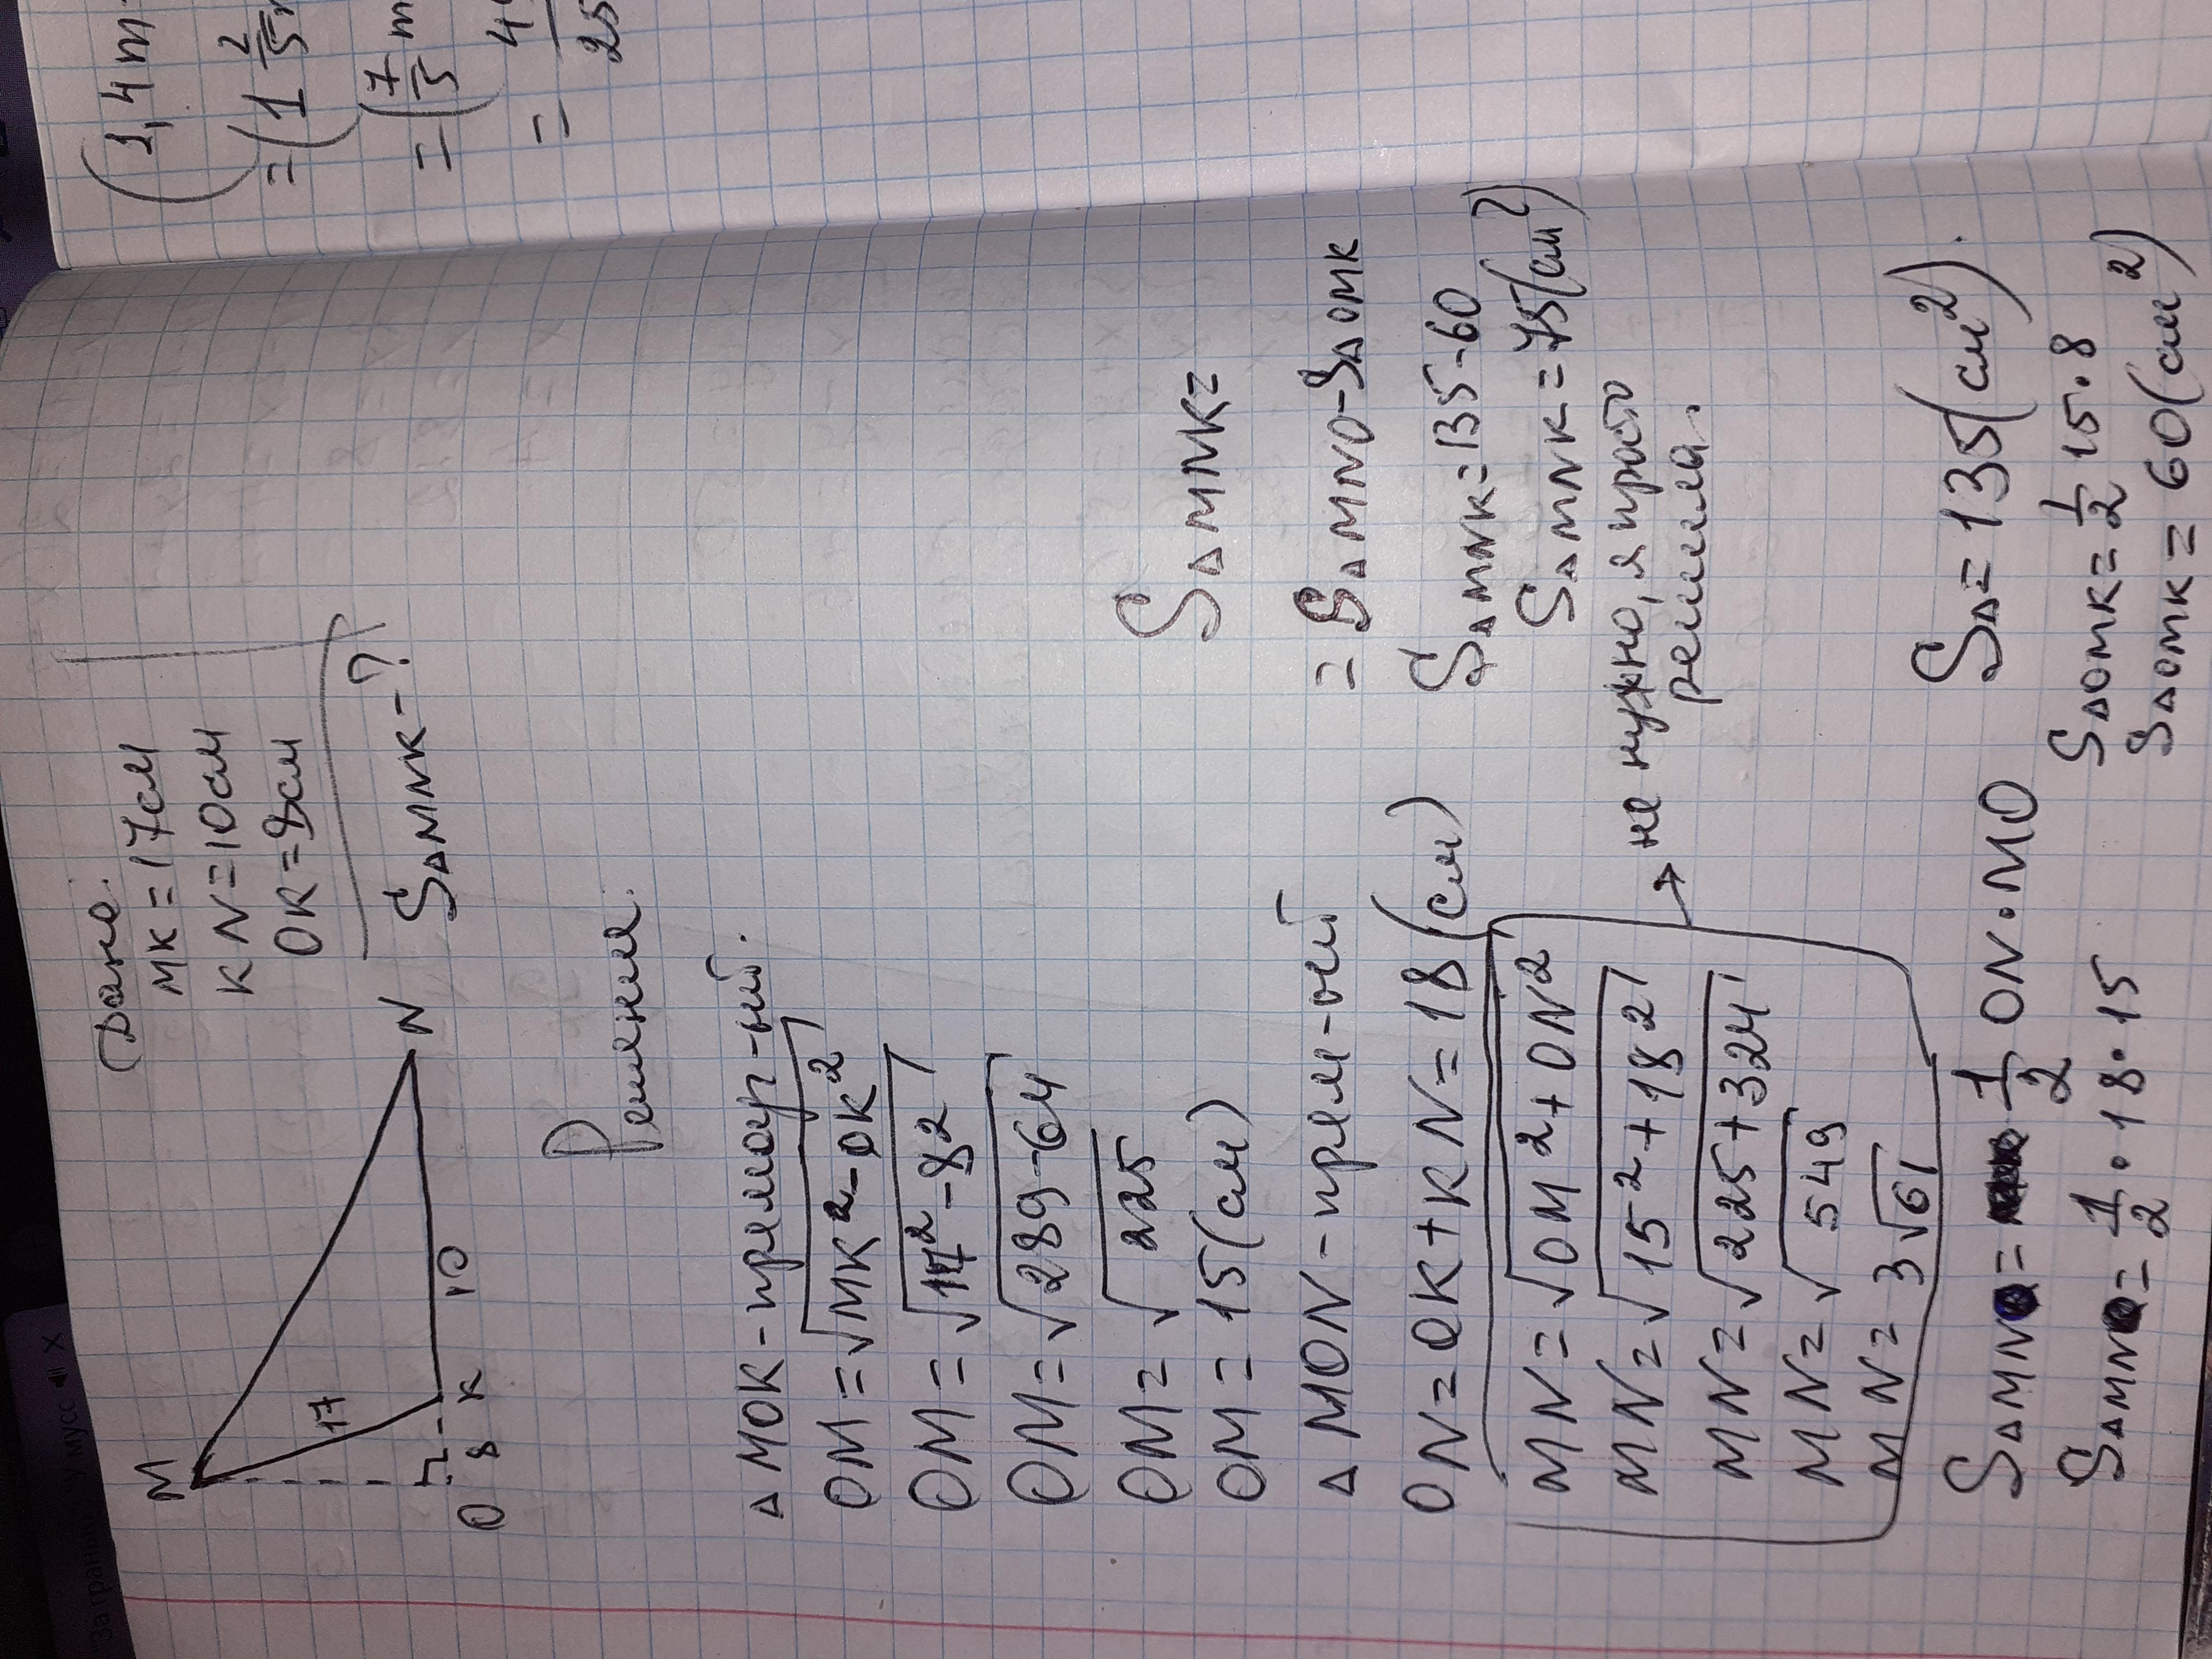 (1,4m
=(1 2/5 m
=(7/5 m
= 4 / 25
Дано:
MK=17см
KN=10см
OK=8см
S△MNK-?
M
N
17
10
O 8 K
Решение.
△MOK-прямоуг-ый.
OM=√MK²-OK²
OM=√17²-8²
OM=√289-64
OM=√225
OM=15(см)
△MON-прям-ый
ON=OK+KN=18(см)
MN=√OM²+ON²
MN=√15²+18²
MN=√225+324
MN=√549
MN=3√61
→ не нужно, я просто
решила.
S△MNK=
=S△MNO-S△OMK
S△MNK=135-60
S△MNK=75(см²)
S△MNO= 1/2 ON·MO
S△MNO= 1/2·18·15
S△=135(см²).
S△OMK= 1/2 15·8
S△OMK=60(см²)